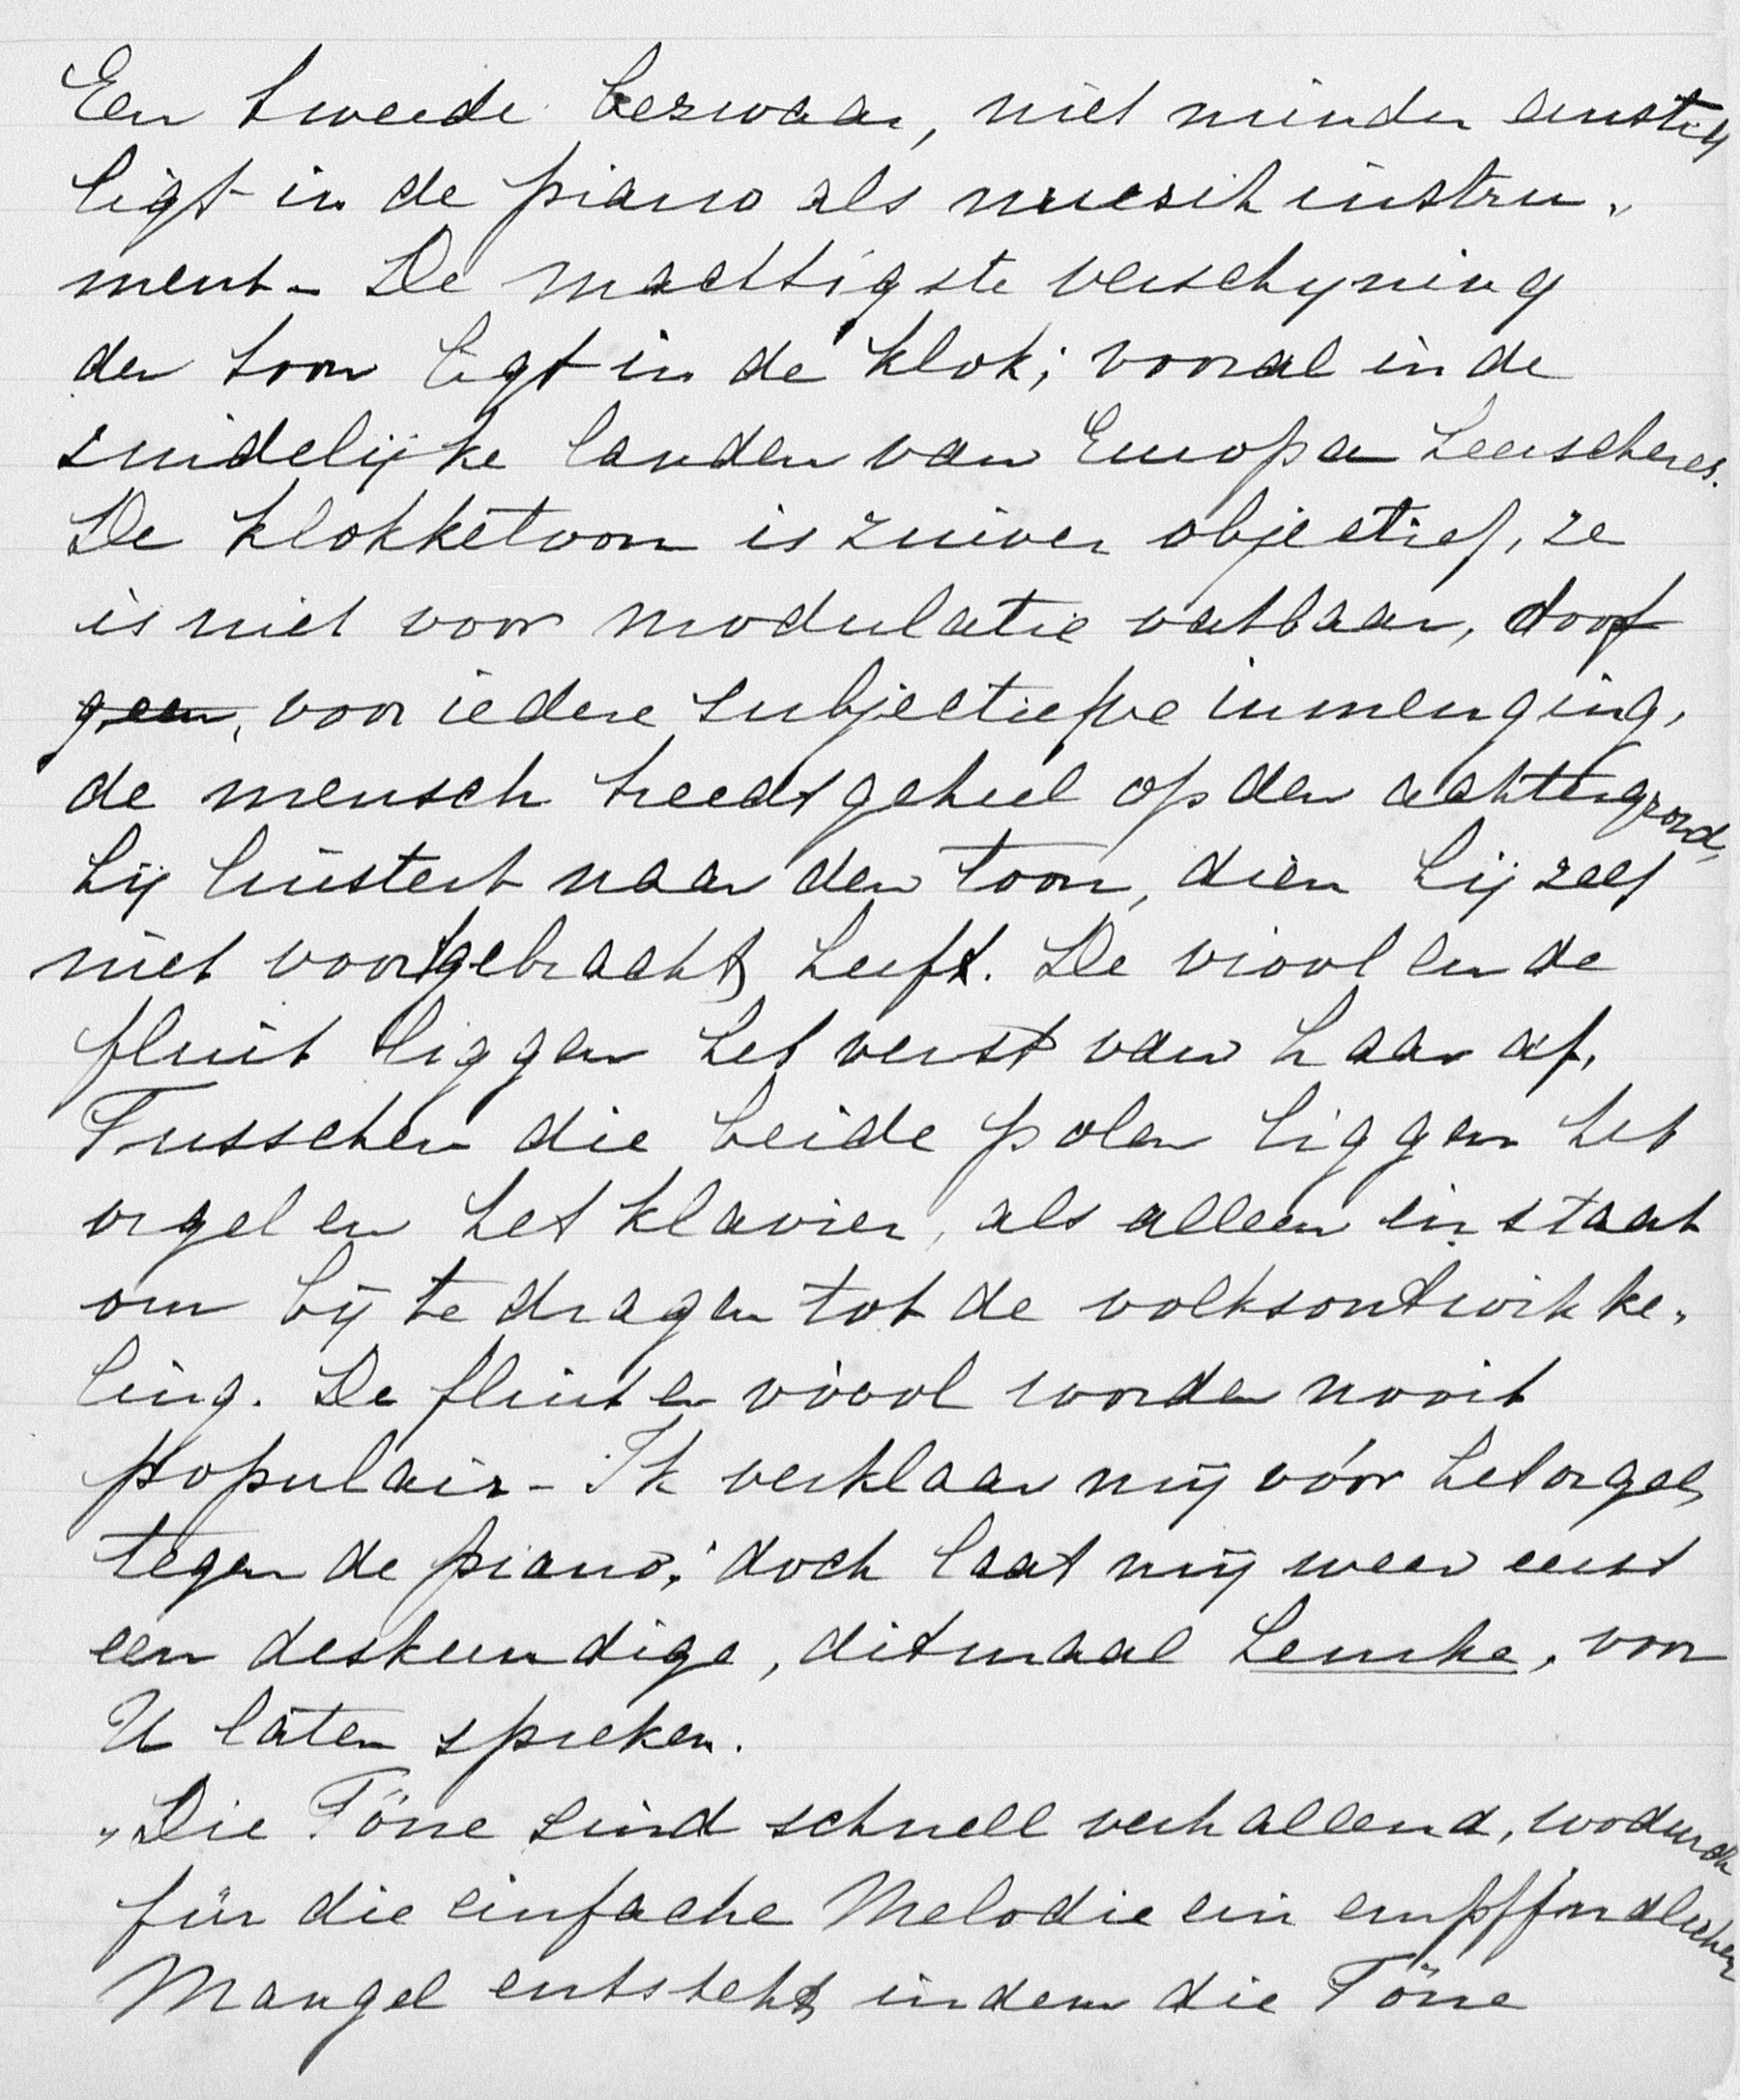 Een tweede bezwaar, niet minder ernstig
ligt in de piano als muziekinstru-
ment - De machtigste verschyning
der toon ligt in de klok; vooral in de
zuidelijke landen van Europa heerscheres.
De klokketoon is zuiver objectief, ze
is niet voor modulatie vatbaar, doof
geen, voor iedere subjectiefve inmenging,
de mensch treedt geheel op den achtergrond,
hij luistert naar den toon, dien hij zelf
niet voortgebracht heeft. De viool en de
fluit liggen het verst van haar af.
Tusschen die beide polen liggen het
orgel en het klavier, als alleen in staat
om bij te dragen tot de volksontwikke-
ling. De fluit en viool worden nooit
populair - Ik verklaar mij vóór het orgel,
tegen de piano; doch laat mij weer eerst
een deskundige, ditmaal Lemke, voor
U laten spreken.
„Die Töne sind schnell verhallend, wodurch
für die einfache Melodie ein empfindlicher
Mangel entsteht, indem die Töne